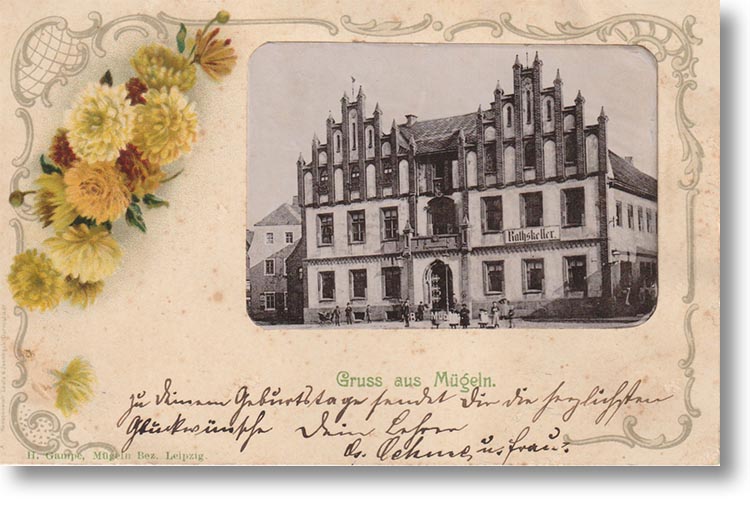 Rathskeller.
Gruss aus Mügeln.
Zu Deinem Geburtstage sendet Dir die herzlichsten
Glückwünsche Dein Lehrer
u. Frau.
H. Gampe, Mügeln Bez. Leipzig.